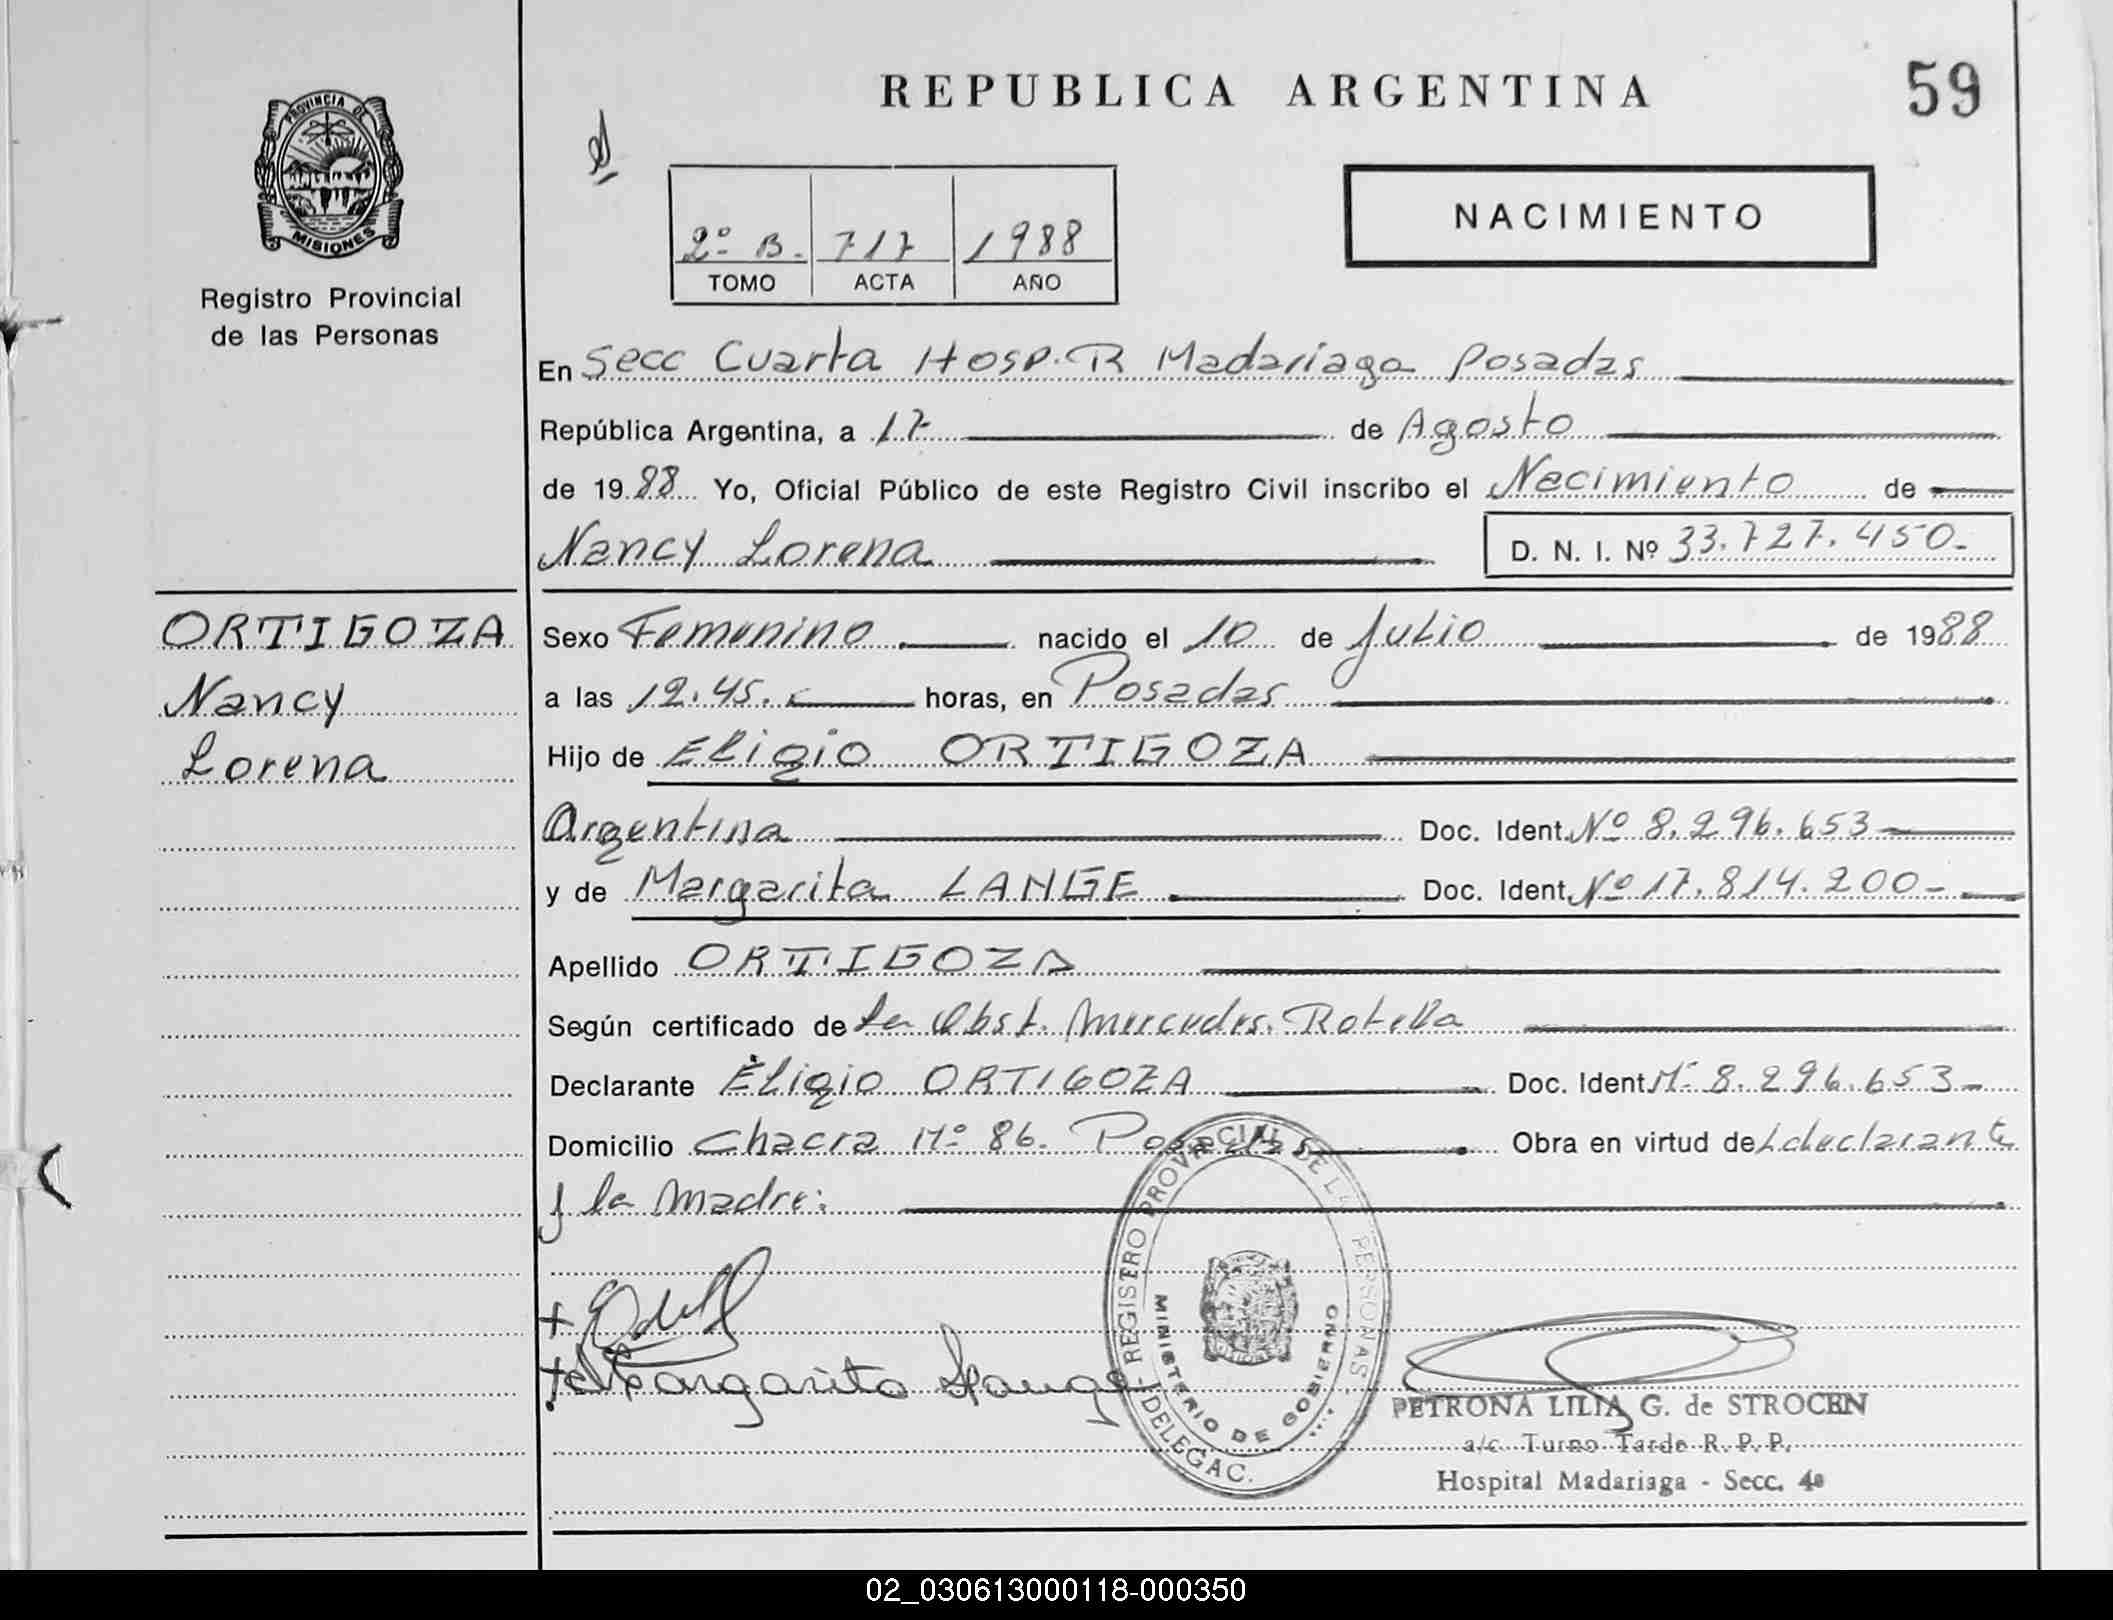 REPUBLICA ARGENTINA
59
PROVINCIA DE
MISIONES
Registro Provincial
de las Personas
2º B. 717 1988
TOMO ACTA AÑO
NACIMIENTO
En Secc Cuarta Hosp. R Madariaga Posadas
República Argentina, a 17 de Agosto
de 1988 Yo, Oficial Público de este Registro Civil inscribo el Nacimiento de
Nancy Lorena D. N. I. Nº 33.727.450.-
ORTIGOZA
Nancy
Lorena
Sexo Femenino nacido el 10 de Julio de 1988
a las 12.45. horas, en Posadas
Hijo de Eligio ORTIGOZA
Argentina Doc. Ident. Nº 8.296.653-
y de Margarita LANGE Doc. Ident. Nº 17.814.200-
Apellido ORTIGOZA
Según certificado de la Obst. Mercedes Rotella
Declarante Eligio ORTIGOZA Doc. Ident Nº 8.296.653-
Domicilio Chacra Nº 86. Posadas Obra en virtud de declarante
y la madre:
+
+ Margarita Lange
REGISTRO PROVINCIAL DE LAS PERSONAS
MINISTERIO DE GOBIERNO
DELEGAC.
PETRONA LILIA G. de STROCEN
a/c. Turno Tarde R. P. P.
Hospital Madariaga - Secc. 4ª
02_030613000118-000350